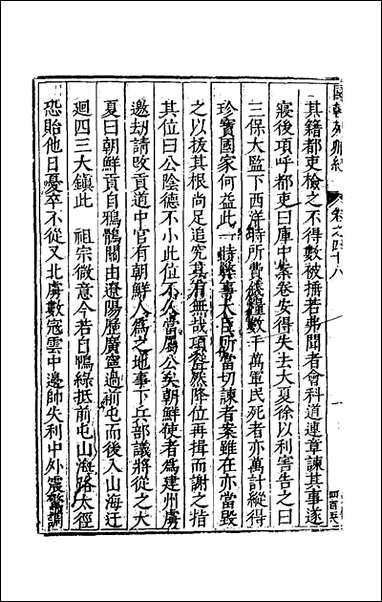 國朝列卿紀 卷之四十八
其籍都吏檢之不得數被捶若弗聞者會科道連章諫其事遂
寢後項呼都吏曰庫中案卷安得失去大夏徐以利害告之曰
三保大監下西洋時所費錢糧數千萬軍民死者亦萬計縱得
珍寶國家何益此一時弊事大臣所當切諫者案雖在亦當毀
之以拔其根尚足追究其有無哉項聳然降位再揖而謝之指
其位曰公陰德不小此位不久當屬公矣朝鮮使者為建州虜
邀劫請改貢道中官有朝鮮人為之地事下兵部議將從之大
夏曰朝鮮貢自鴉鶻關由遼陽歷廣寧過前屯而後入山海迂
迴四三大鎮此 祖宗微意今若自鴨綠抵前屯山海路太徑
恐貽他日憂卒不從又北虜數寇雲中邊師失利中外震驚調